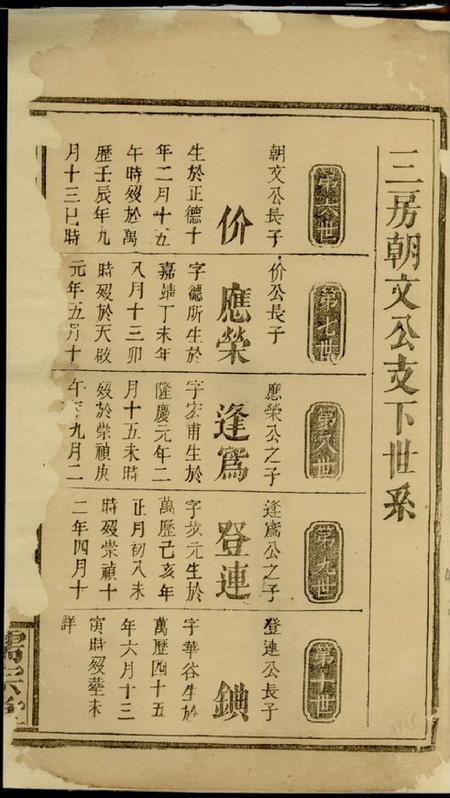 三房朝文公支下世系
第六世
朝文公長子
价
生於正德十
年二月十五
午時殁於萬
歷壬辰年九
月十三巳時
第七世
价公長子
應榮
字德所生於
嘉靖丁未年
八月十三卯
時殁於天啟
元年五月十
第八世
應榮公之子
逢寫
字宏甫生於
隆慶元年二
月十五未時
殁於崇禎庚
午 九月二
第九世
逢寫公之子
登連
字 元生於
萬歷己亥年
正月初八未
時殁崇禎十
二年四月十
第十世
登連公長子
鎖
字華谷生於
萬歷四十五
年六月十三
寅時殁塟未
詳